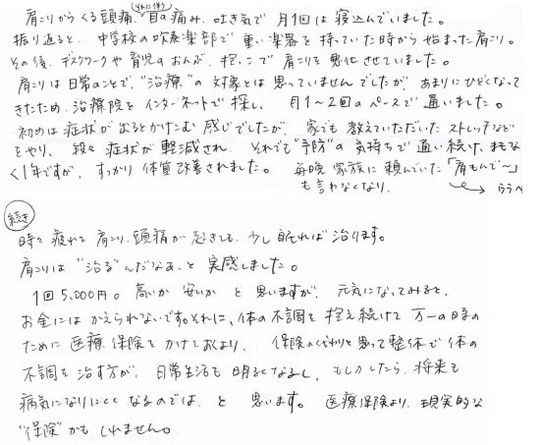 肩こりからくる頭痛、(それに伴う)目の痛み、吐き気で 月1回は 寝込んでいました。
振り返ると、中学校の吹奏楽部で 重い楽器を持っていた時から 始まった肩こり。
その後、デスクワークや育児のおんぶ、抱っこで肩こりを悪化させていました。
肩こりは日常のことで、"治療"の対象とは思っていませんでしたが、あまりにひどくなって
きたため、治療院をインターネットで探し、月1〜2回のペースで通いました。
初めは症状が出るとかけこむ感じでしたが、家でも教えていただいたストレッチなど
をやり、段々症状が軽減され、それでも"予防"の気持ちで通い続け、まもな
く1年ですが、すっかり体質改善されました。毎晩家族に頼んでいた「肩もんで〜」
も言わなくなり、 → うらへ
続き
時々疲れて肩こり、頭痛が起きても、少し眠れば治ります。
肩こりは"治る"んだなあ、と実感しました。
1回5,000円。高いか安いかと思いますが、元気になってみると、
お金にはかえられないです。それに、体の不調を抱え続けて万一の時の
ために医療保険をかけておくより、保険の代わりと思って整体で体の
不調を治す方が、日常生活も明るくなるし、もしかしたら、将来も
病気になりにくくなるのでは、と思います。医療保険より、現実的な
"保険"かもしれません。